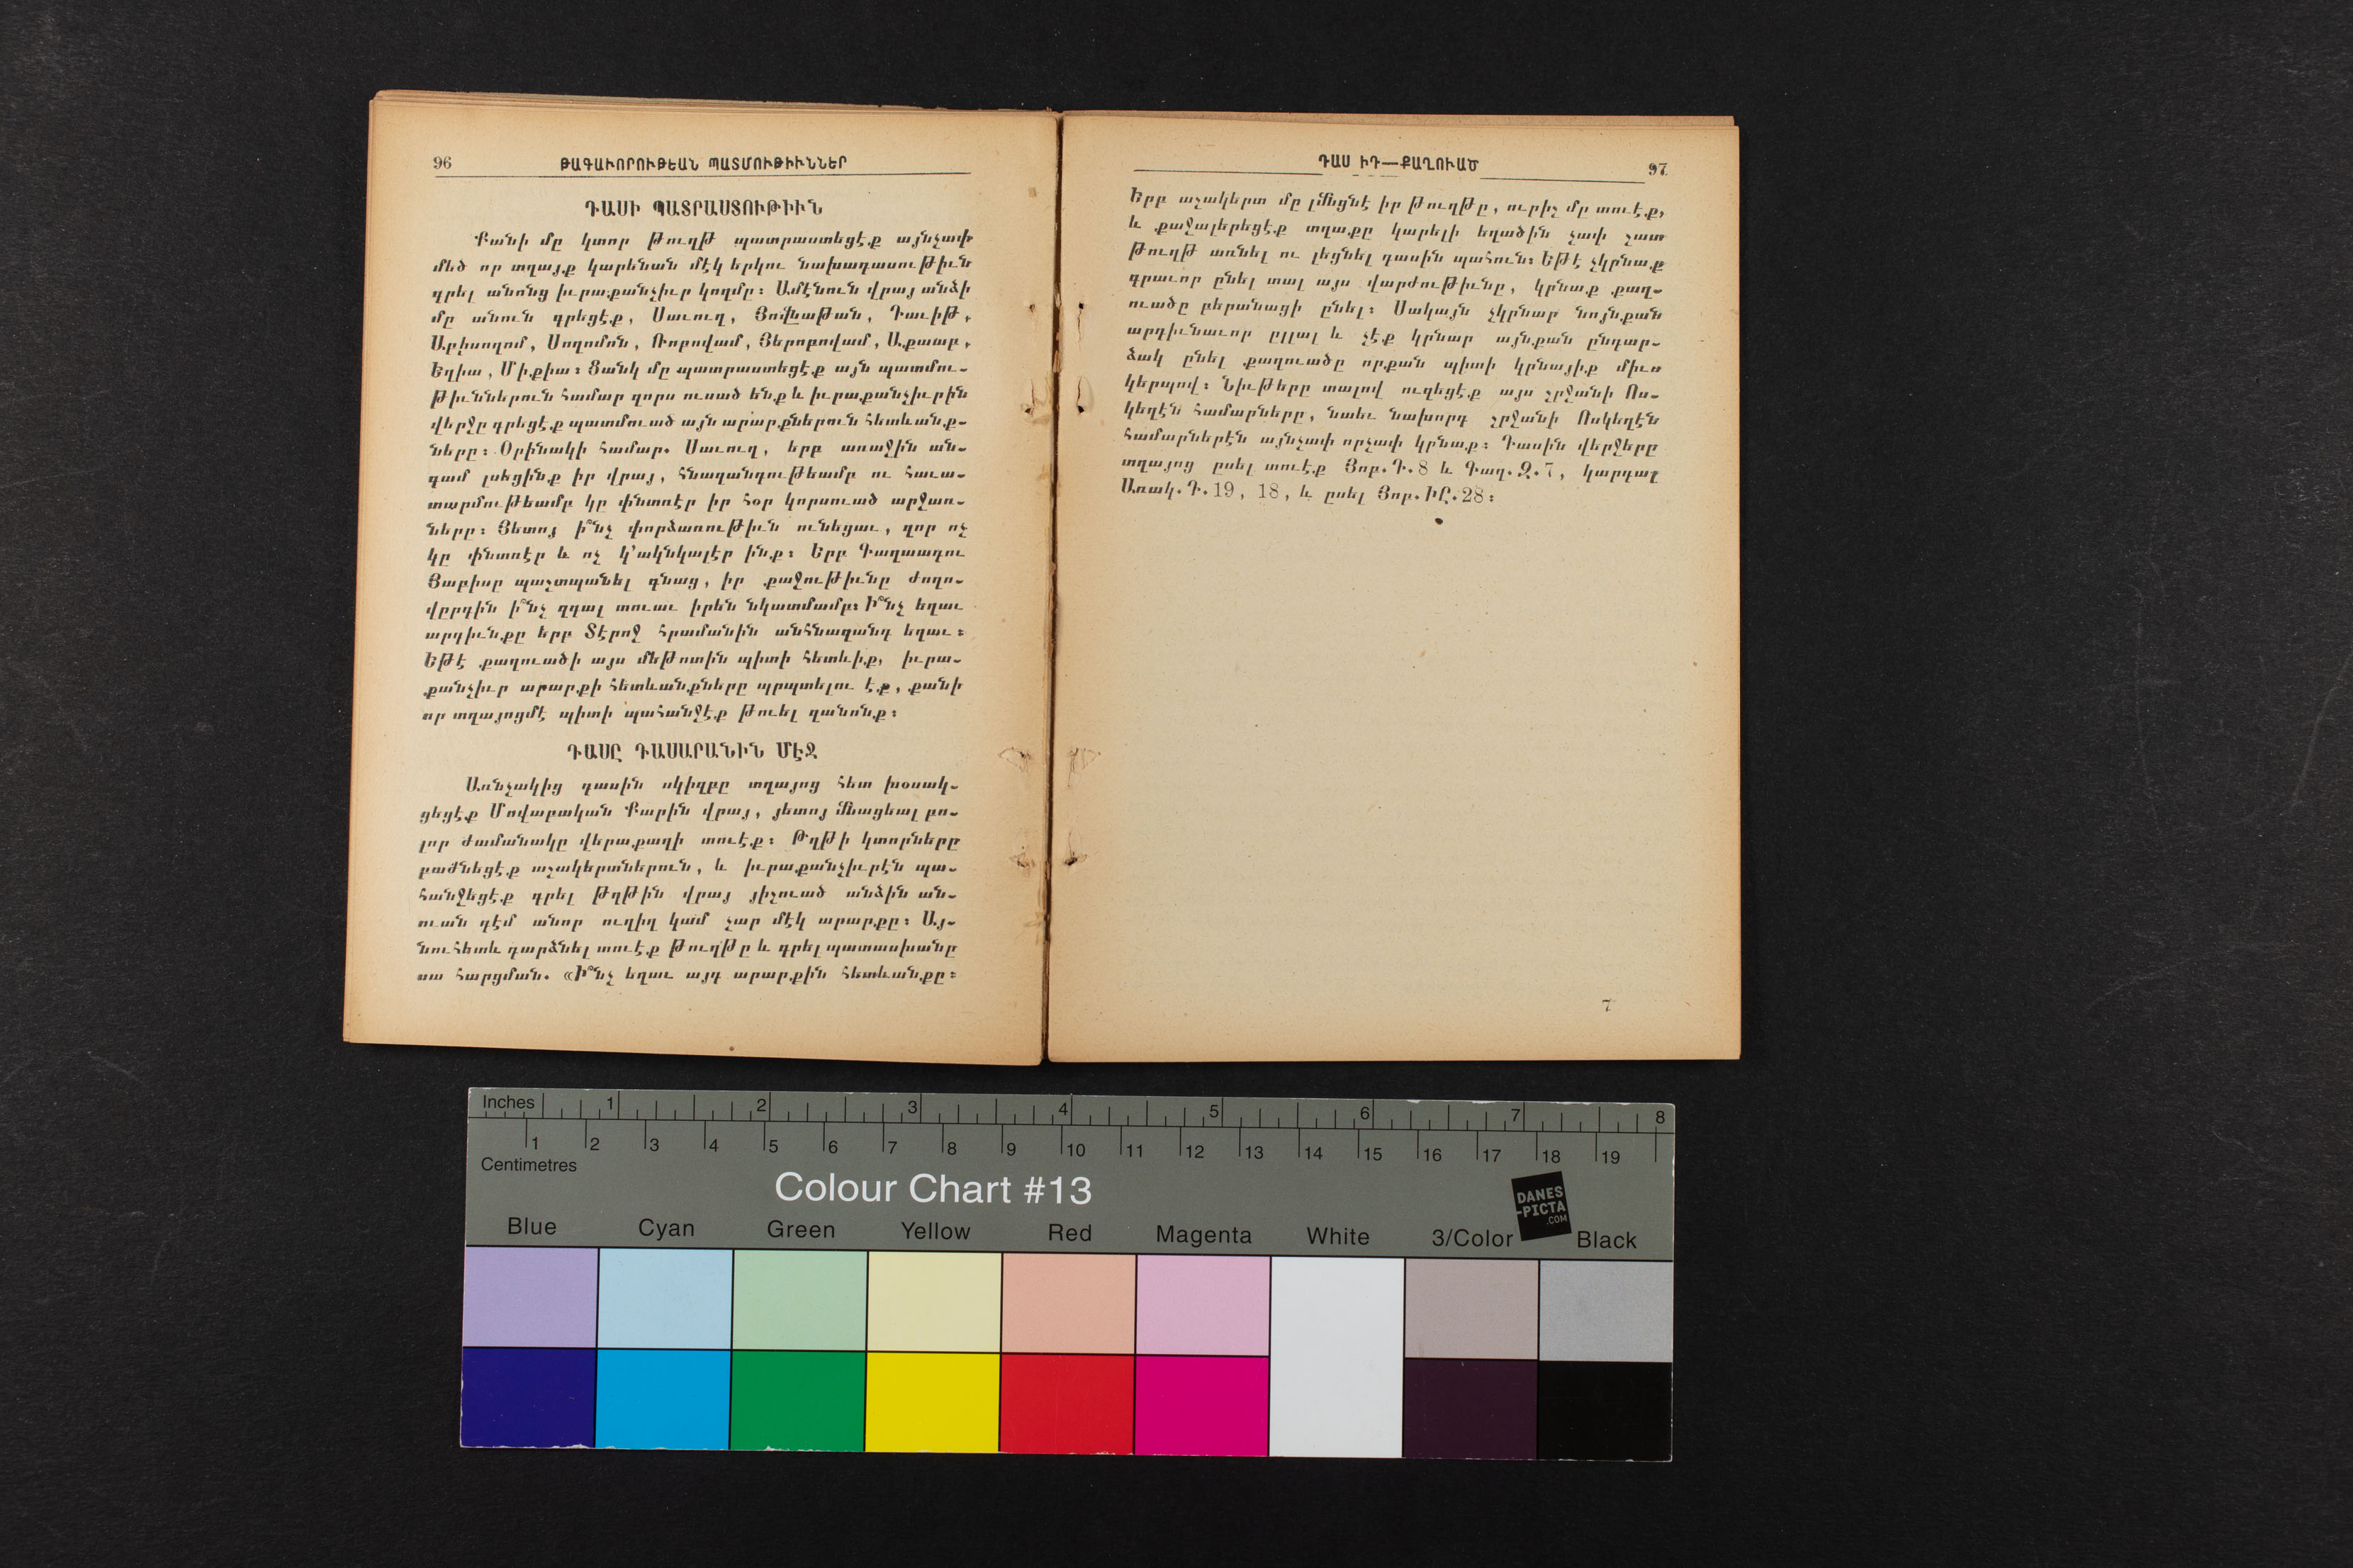 96 ԹԱԳԱՒՈՐՈՒԹԵԱՆ ՊԱՏՄՈՒԹԻՒՆՆԵՐ
ԴԱՍԻ ՊԱՏՐԱՍՏՈՒԹԻՒՆ
Քանի մը կտոր թուղթ պատրաստեցէք այնչափ
մեծ որ տղայք կարենան մէկ երկու նախադասութիւն
գրել անոնց իւրաքանչիւր կողմը։ Ամէնուն վրայ անձի
մը անուն գրեցէք, Սաւուղ, Յովնաթան, Դաւիթ,
Աբիսողոմ, Սողոմոն, Ռոբովամ, Յերոբովամ, Աքաաբ,
Եղիա, Միքիա։ Ցանկ մը պատրաստեցէք այն պատմու-
թիւններուն համար զորս ուսած ենք և իւրաքանչիւրին
վերջը գրեցէք պատմուած այն արարքներուն հետևանք-
ները։ Օրինակի համար. Սաւուղ, երբ առաջին ան-
գամ լսեցինք իր վրայ, հնազանդութեամբ ու հաւա-
տարմութեամբ կը փնտռէր իր հօր կորսուած արջառ-
ները։ Յետոյ ի՞նչ փորձառութիւն ունեցաւ, զոր ոչ
կը փնտռէր և ոչ կ՚ակնկալէր ինք։ Երբ Գաղաադու
Յաբիսը պաշտպանել գնաց, իր քաջութիւնը ժողո-
վըրդին ի՞նչ զգալ տուաւ իրեն նկատմամբ։ Ի՞նչ եղաւ
արդիւնքը երբ Տէրոջ հրամանին անհնազանդ եղաւ։
Եթէ քաղուածի այս մեթոտին պիտի հետևիք, իւրա-
քանչիւր արարքի հետևանքները պրպտելու էք, քանի
որ տղայոցմէ պիտի պահանջէք թուել զանոնք։
ԴԱՍԸ ԴԱՍԱՐԱՆԻՆ ՄԷՋ
Առնչակից դասին սկիզբը տղայոց հետ խօսակ-
ցեցէք Մովաբական Քարին վրայ, յետոյ մնացեալ բո-
լոր ժամանակը վերաքաղի տուէք։ Թղթի կտորները
բաժնեցէք աշակերտներուն, և իւրաքանչիւրէն պա-
հանջեցէք գրել թղթին վրայ յիշուած անձին ան-
ուան դէմ անոր ուղիղ կամ չար մէկ արարքը։ Այ-
նուհետև դարձնել տուէք թուղթը և գրել պատասխանը
սա հարցման. «Ի՞նչ եղաւ այդ արարքին հետևանքը։
ԴԱՍ ԻԴ—ՔԱՂՈՒԱԾ 97
Երբ աշակերտ մը լմնցնէ իր թուղթը, ուրիշ մը տուէք,
և քաջալերեցէք տղաքը կարելի եղածին չափ շատ
թուղթ առնել ու լեցնել դասին պահուն։ Եթէ չկրնաք
գրաւոր ընել տալ այս վարժութիւնը, կրնաք քաղ-
ուածը բերանացի ընել։ Սակայն չկրնար նոյնքան
արդիւնաւոր ըլլալ և չէք կրնար այնքան ընդար-
ձակ ընել քաղուածը որքան պիտի կրնայիք միւս
կերպով։ Նիւթերը տալով ուղեցէք այս շրջանի Ոս-
կեղէն համարները, նաեւ նախորդ շրջանի Ոսկեղէն
համարներէն այնչափ որչափ կրնաք։ Դասին վերջերը
տղայոց ըսել տուէք Յոբ. Դ. 8 և Գաղ. Զ. 7, կարդալ
Առակ. Դ. 19, 18, և ըսել Յոբ. ԻԸ. 28։
7
Inches 1 2 3 4 5 6 7 8
1 2 3 4 5 6 7 8 9 10 11 12 13 14 15 16 17 18 19
Centimetres
Colour Chart #13
DANES
-PICTA
.COM
Blue Cyan Green Yellow Red Magenta White 3/Color Black